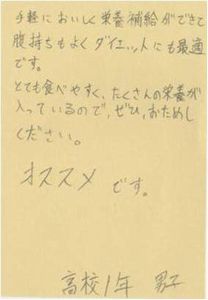 手軽においしく栄養補給ができて
腹持ちもよくダイエットにも最適
です。
とても食べやすく、たくさんの栄養が
入っているので、ぜひ、おためし
ください。
オススメ です。
高校1年 男子